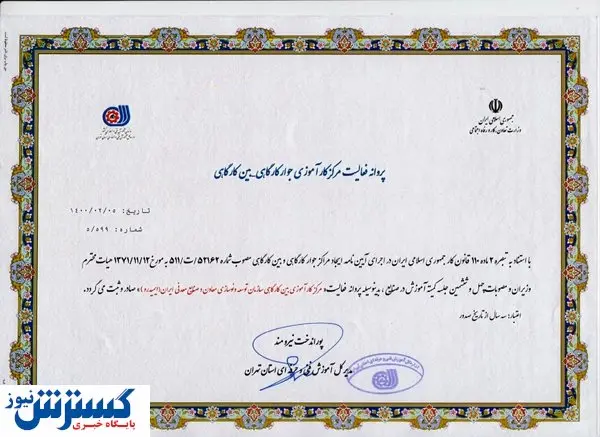 جمهوری اسلامی ایران
وزارت تعاون، کار و رفاه اجتماعی
پروانه فعالیت مرکز کارآموزی جوار کارگاهی_بین کارگاهی
تاریخ: ۱۴۰۰/۰۲/۰۵
شماره: ۵/۵۹۹
با استناد به تبصره ۲ ماده ۱۱۰ قانون کار جمهوری اسلامی ایران در اجرای آیین نامه ایجاد مراکز جوار کارگاهی و بین کارگاهی مصوب شماره ۵۲۱۶۲/ت/۵۱۱ به مورخ ۱۳۷۱/۱۱/۱۲ هیات محترم
وزیران و مصوبات چهل و ششمین جلسه کمیته آموزش در صنایع ، بدینوسیله پروانه فعالیت «مرکز کارآموزی بین کارگاهی سازمان توسعه و نوسازی معادن و صنایع معدنی ایران (ایمیدرو)» صادر و ثبت می گردد.
اعتبار: سه سال از تاریخ صدور
پوراندخت نیرومند
مدیر کل آموزش فنی و حرفه ای استان تهران
گسترش نیوز
پایگاه خبری